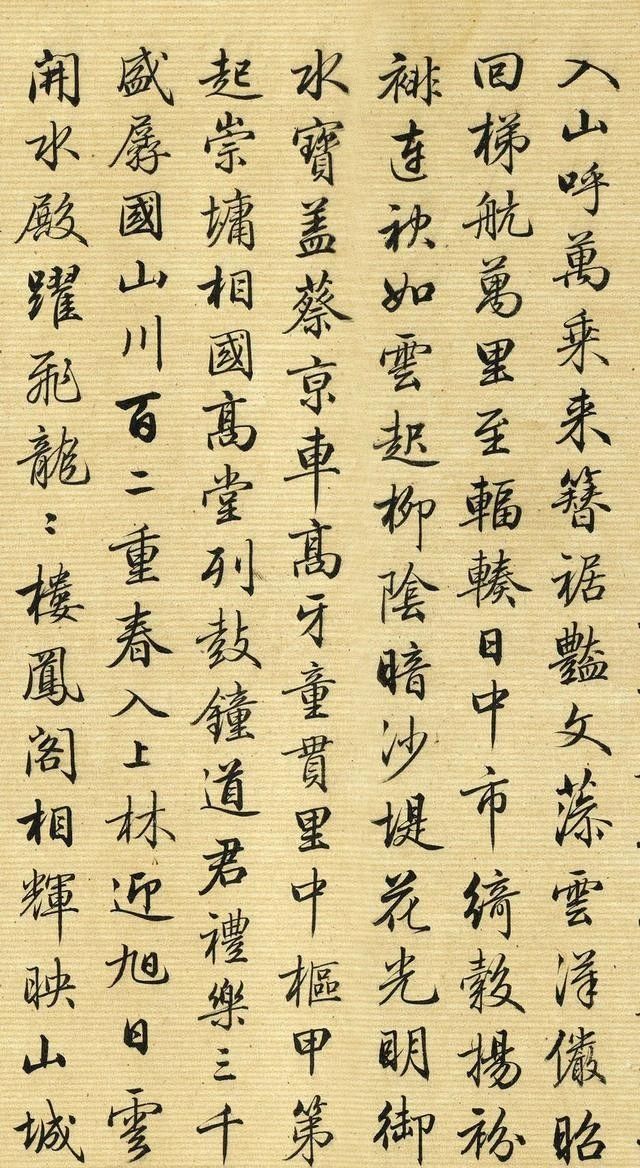 入山呼萬乗来簪裾豔文藻雲漢儼昭
回梯航萬里至輻輳日中市綺縠揚衯
裶連袂如雲起柳陰暗沙堤花光明御
水寶盖蔡京車髙牙童貫里中樞甲第
起崇墉相國髙堂列鼓鐘道君禮樂三千
盛孱國山川百二重春入上林迎旭日雲
開水殿躍飛龍〻樓鳳阁相輝映山城